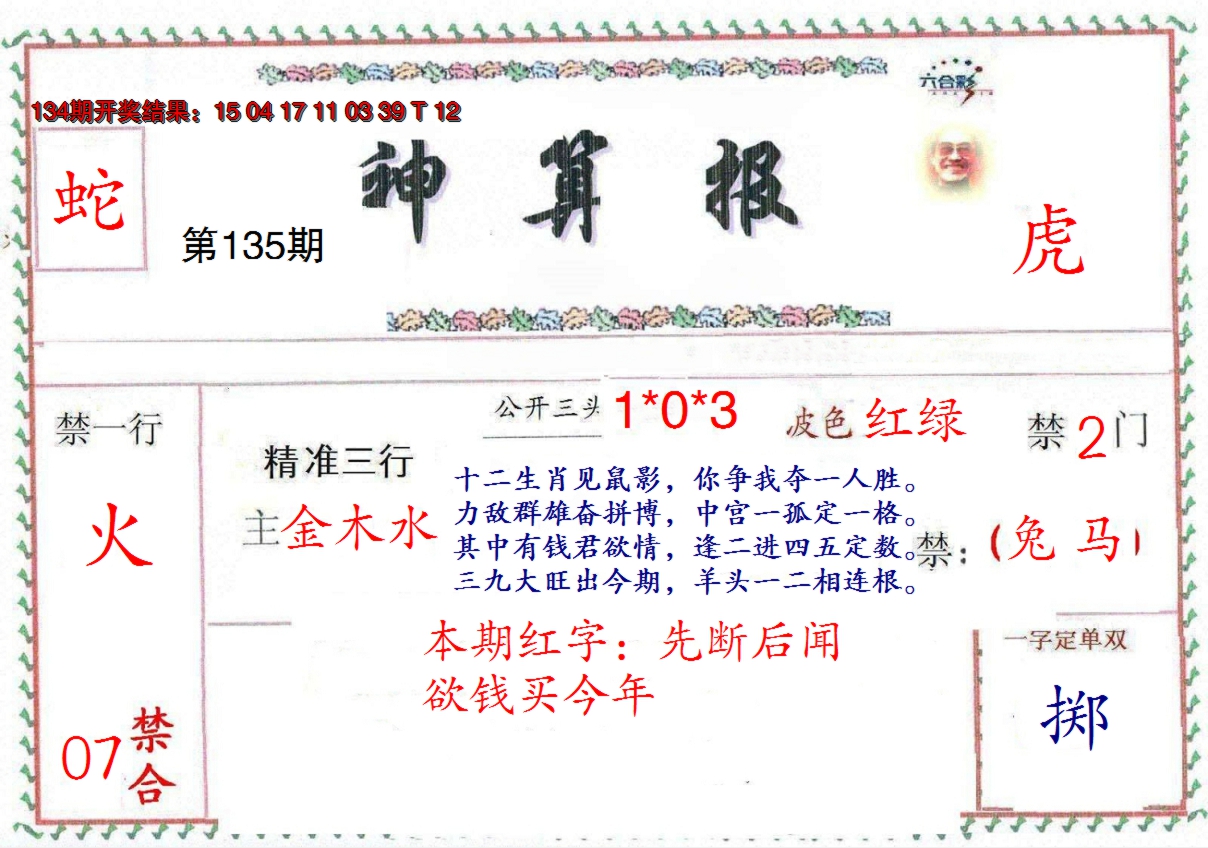 六合彩
134期开奖结果：15 04 17 11 03 39 T 12
神算报
蛇
第135期
虎
公开三头 1*0*3
波色 红绿
禁一行
禁2门
精准三行
主金木水
十二生肖见鼠影，你争我夺一人胜。
力敌群雄奋拼博，中宫一孤定一格。
其中有钱君欲情，逢二进四五定数。
三九大旺出今期，羊头一二相连根。
火
禁：（兔 马）
本期红字：先断后闻
欲钱买今年
一字定单双
掷
07禁合